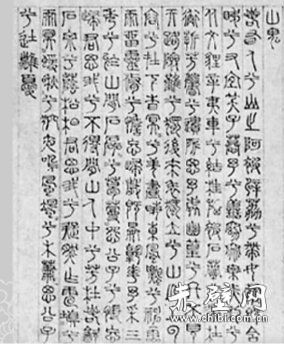 山鬼
若有人兮山之阿被薜荔兮帶女羅既含
睇兮又宜笑子慕予兮善窈窕乘赤豹
兮從文狸辛夷車兮結桂旗被石蘭兮帶杜
衡折芳馨兮遺所思余處幽篁兮終不見
天路險難兮獨後來表獨立兮山之上雲
容容兮而在下杳冥冥兮羌晝晦東風飄兮神靈
雨留靈修兮憺忘歸歲既晏兮孰華予采三
秀兮於山間石磊磊兮葛蔓蔓怨公子兮悵忘
歸君思我兮不得閒山中人兮芳杜若飲
石泉兮蔭松柏君思我兮然疑作雷填填兮
雨冥冥猨啾啾兮狖夜鳴風颯颯兮木蕭蕭思公子
兮徒離憂
赤壁网
chibi.com.cn